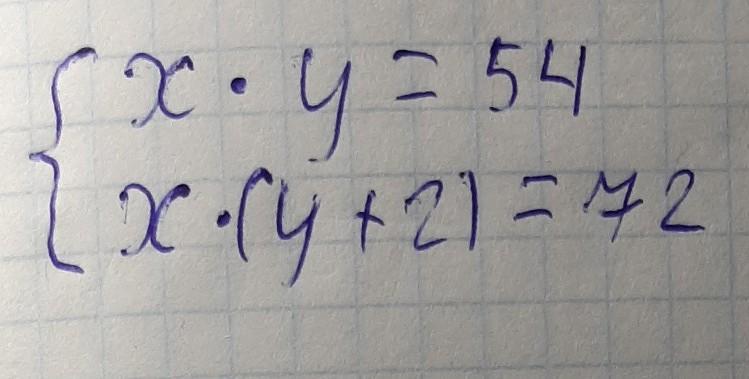 x · y = 54
x · (y + 2) = 72